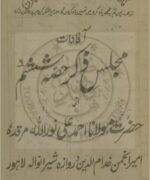 آفادات
مجلس ذکر حصہ ششم
از
حضرت مولانا احمد علی نور اللہ مرقدہ
امیر انجمن خدام الدین دروازہ شیرانوالہ لاہور